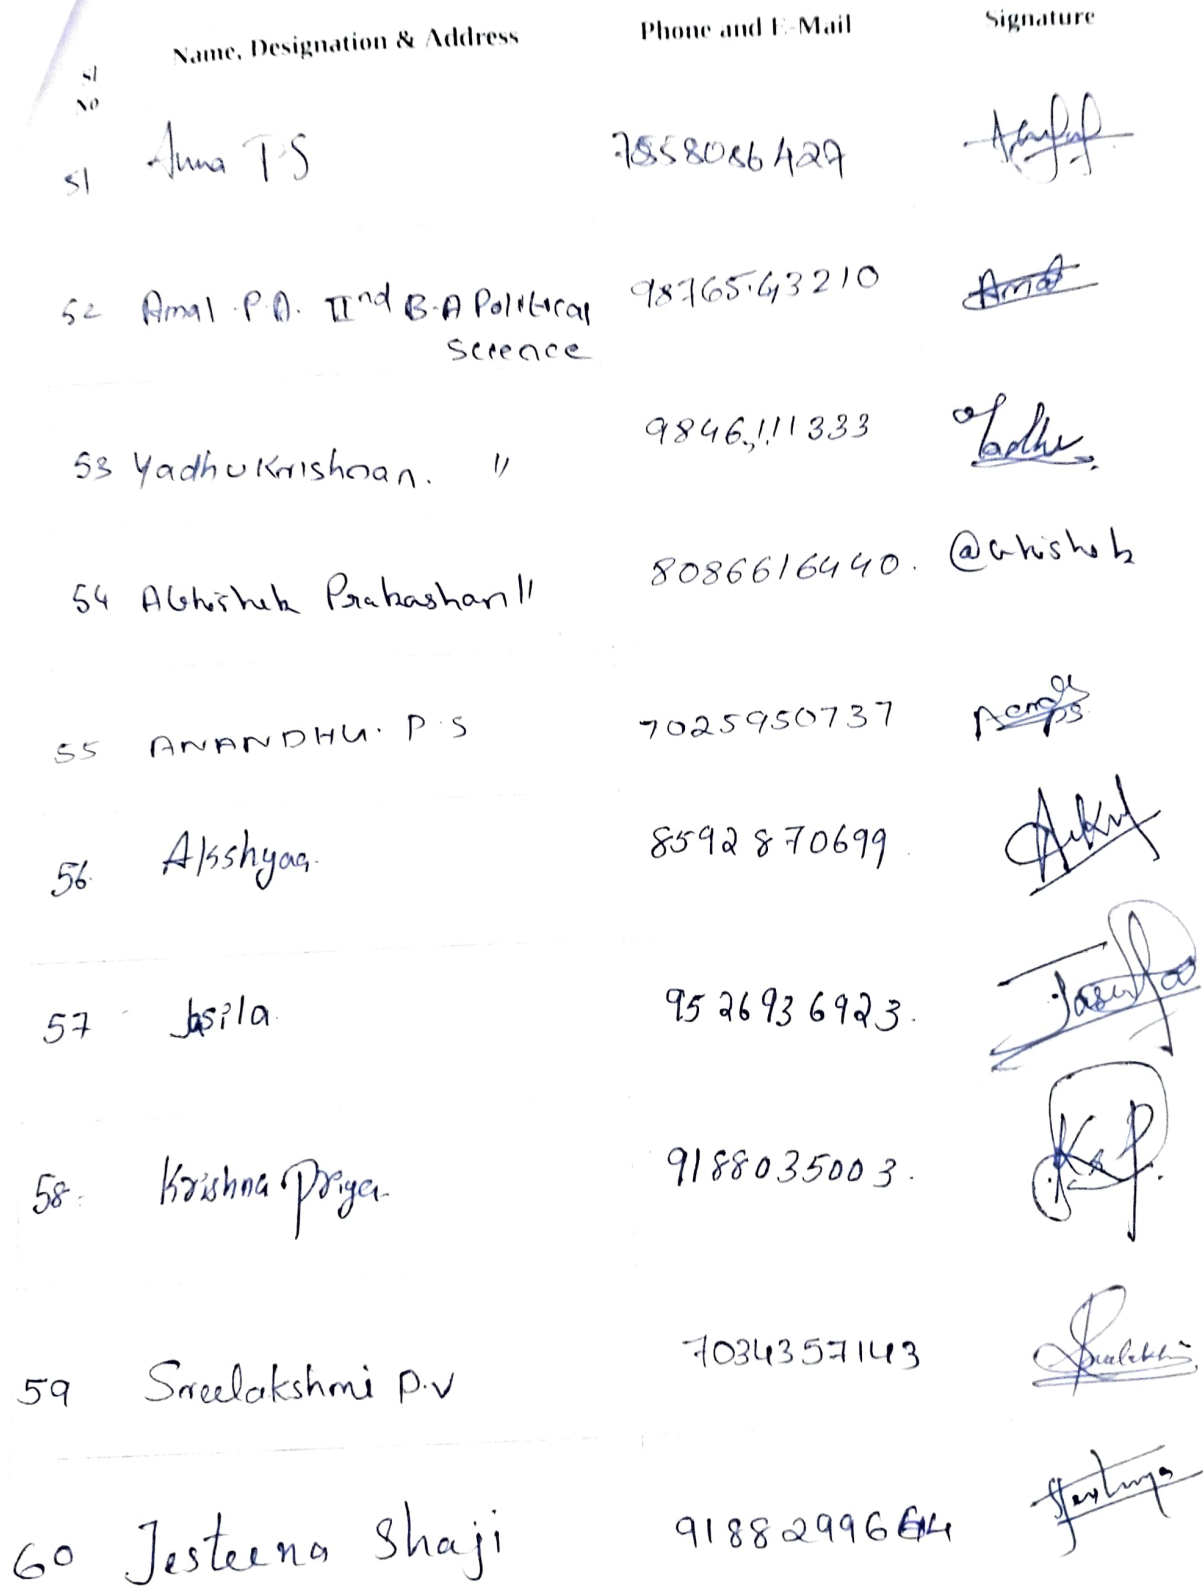 Sl No Name, Designation & Address Phone and E-Mail Signature
51 Anna T S 7558086427
52 Amal P.A. IInd B.A Political Science 9876543210 Amal
53 Yadhu Krishnan. " 9846111333 Yadhu
54 Abhishek Prakashan " 8086616440. @bhishek
55 ANANDHU. P.S 7025950737
56. Akshyaa 8592870699
57 Jasila 9526936923.
58. Krishna Priya 9188035003. K P.
59 Sreelakshmi P.V 7034357143 Sreelakshmi
60 Jesteena Shaji